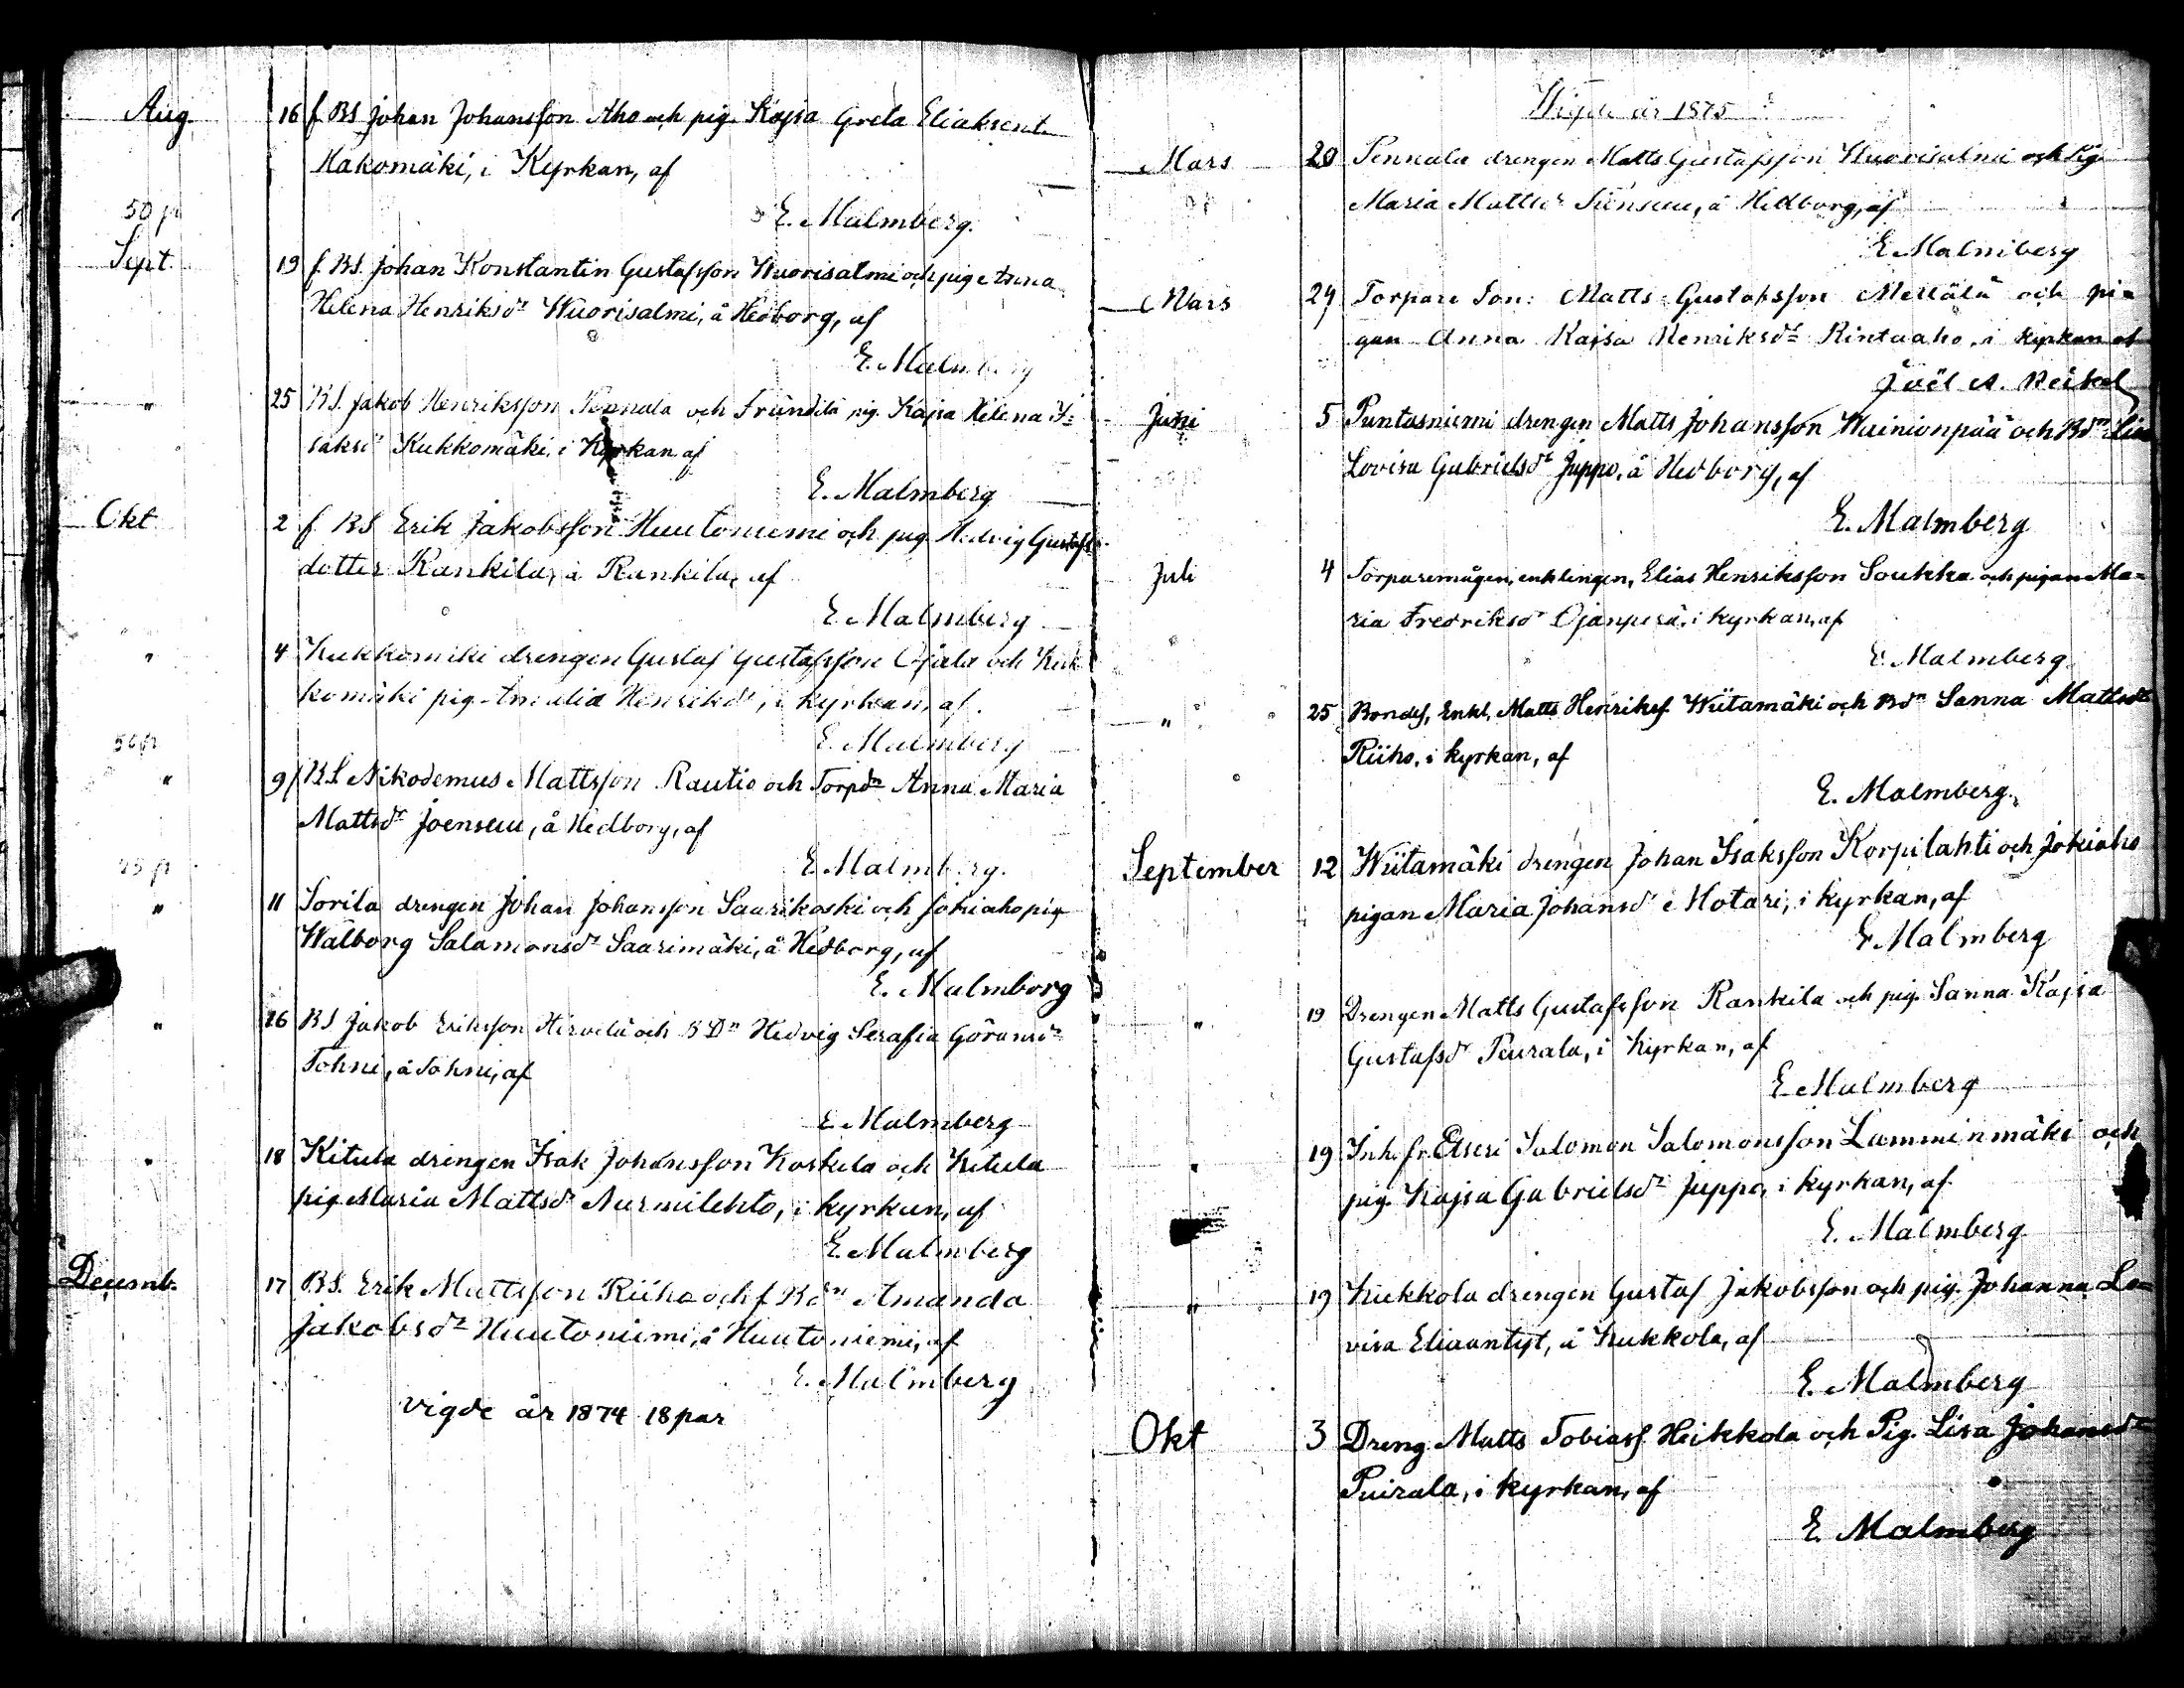 Aug. 16 f BS Johan Johansson Aho och pig. Kajsa Greta Eliaksent.
Hakomäki, i Kyrkan, af
50 p
E. Malmberg.
Sept. 19 f. BS. Johan Konstantin Gustafsson Wuorisalmi och pig Anna
Helena Henriksdr Wuorisalmi, å Hedborg, af
E. Malmberg
" 25 BS. Jakob Henriksson Pennala och pig. Kajsa Helena I=
saksdr Kukkomäki, i Kyrkan af
E. Malmberg
Okt 2 f BS Erik Jakobsson Huutoniemi och pig. Hedvig Gustafs
dotter Rankila, å Rankila, af
E. Malmberg
" 4 Kukkomäki drengen Gustaf Gustafsson Ojala och Kuk
komäki pig. Amalia Henriksdr, i kyrkan, af.
E. Malmberg
50 p
" 9 f BS Nikodemus Mattsson Rautio och Torpdn Anna Maria
Mattsdr Joensuu, å Hedborg, af
E. Malmberg.
25 p
" 11 Sorila drengen Johan Johansson Saarikoski och Jokiaho pig
Walborg Salamonsdr Saarimäki, å Hedborg, af
E. Malmborg
" 16 BS Jakob Eriksson Hirvelä och BDn Hedvig Serafia Göransdr
Tohni, å Tohni, af
E. Malmberg
" 18 Kitula drengen Isak Johansson Koskela och Kitula
pig. Maria Mattsdr Nurmilehto, i kyrkan, af
E. Malmberg
Decemb. 17 BS. Erik Mattsson Riiho och f. Bdn Amanda
Jakobsdr Huutoniemi, å Huutoniemi, af
E. Malmberg
vigde år 1874 18 par
Wigde år 1875
Mars 20 Pennala drengen Matts Gustafsson Wuorisalmi och Pig
Maria Mattsdr, å Hedborg, af
E. Malmberg
Mars 29 Torpare Son: Matts Gustafsson Metsälä och pi=
gan Anna Kajsa Henriksdr Rintaaho, i kyrkan af
Joël A. Heikel
Juni 5 Puntasniemi drengen Matts Johansson Wainionpää och Bdn Lisa
Lovisa Gabrielsdr Juppo, å Hedborg, af
E. Malmberg
Juli 4 Torparemågen, enklingen, Elias Henriksson Soukka och pigan Ma=
ria Fredriksdr Ojanperä, i kyrkan, af
E. Malmberg
" 25 Bondes. Enkl. Matts Henrikss. Wiitamäki och Bdn Sanna Mattsdr
Riiho, i kyrkan, af
E. Malmberg.
September 12 Wiitamäki drengen Johan Isaksson Korpilahti och Jokiaho
pigan Maria Johansdr Hotari, i kyrkan, af
E Malmberg
" 19 Drengen Matts Gustafsson Rankila och pig. Sanna Kajsa
Gustafsdr Peurala, i kyrkan, af
E. Malmberg
" 19 Inh. fr. Etseri Salomon Salomonsson Lamminmäki och
pig. Kajsa Gabrielsdr Juppo, i kyrkan, af
E. Malmberg
" 19 Kukkola drengen Gustaf Jakobsson och pig. Johanna Lo=
visa Eliaantyt, å Kukkola, af
E. Malmberg
Okt 3 Dreng. Matts Tobiass. Heikkola och Pig. Lisa Johansdr
Puirala, i kyrkan, af
E Malmberg